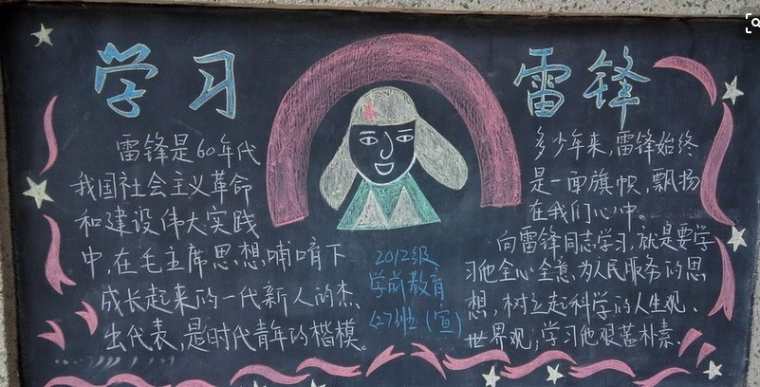 学习
雷锋
雷锋是60年代
我国社会主义革命
和建设伟大实践
中,在毛主席思想哺唷下
成长起来的一代新人的杰
出代表,是时代青年的楷模。
2012级
学前教育
427班(宣)
多少年来,雷锋始终
是一面旗帜,飘扬
在我们心中。
向雷锋同志学习,就是要学
习他全心全意为人民服务的思
想,树立起科学的人生观、
世界观;学习他艰苦朴素.